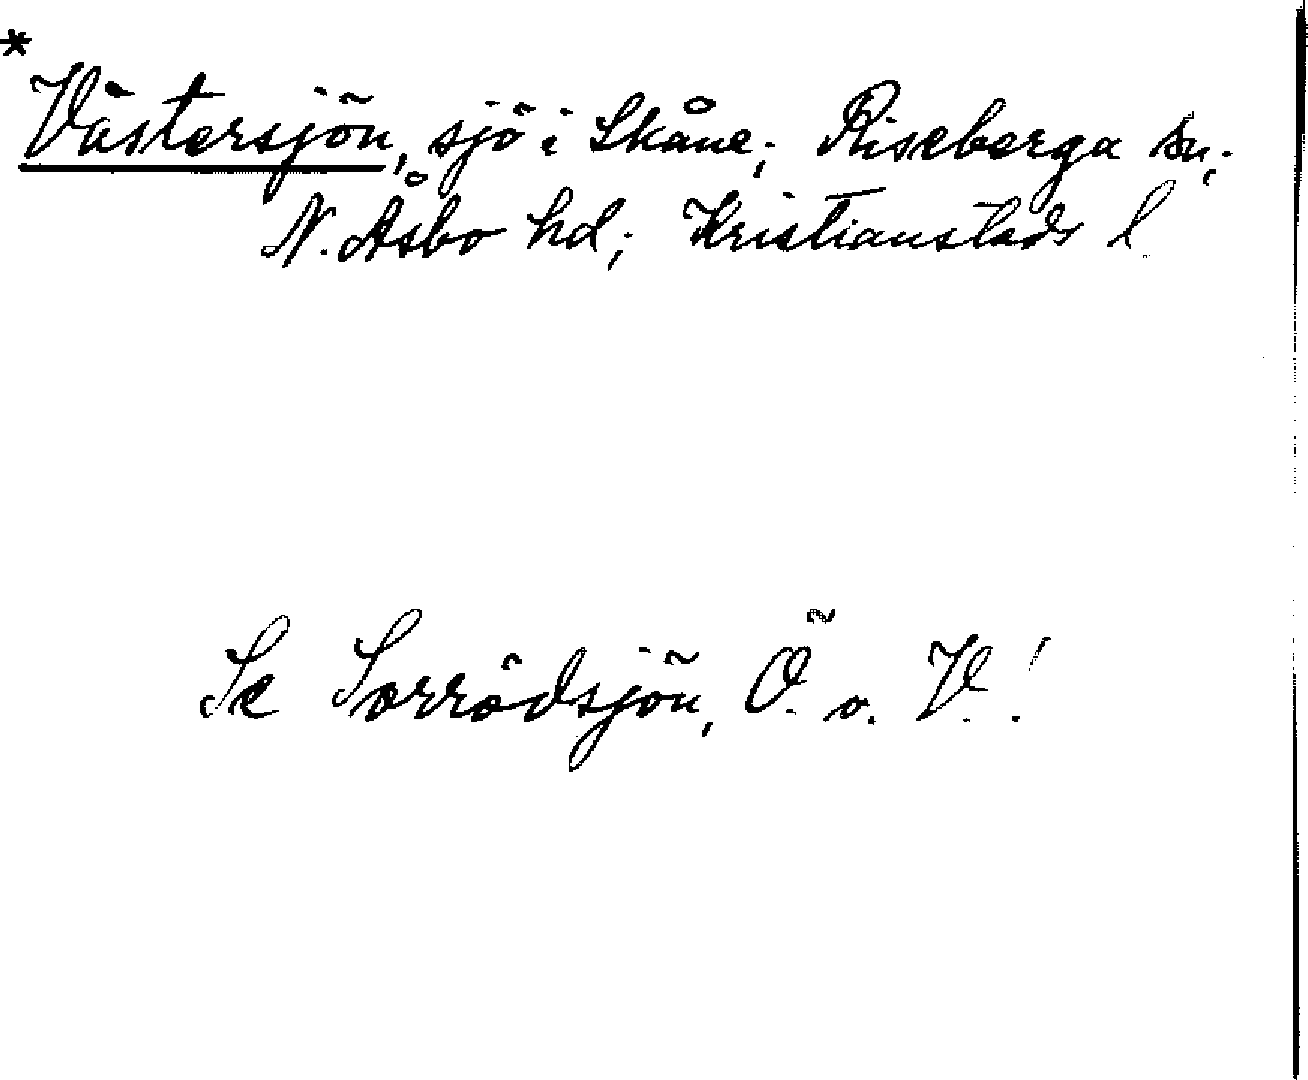 *
Västersjön, sjö i Skåne; Riseberga sn;
N. Åsbo hd; Kristianstads l.
Se Sorrödsjön, Ö. o. V.!